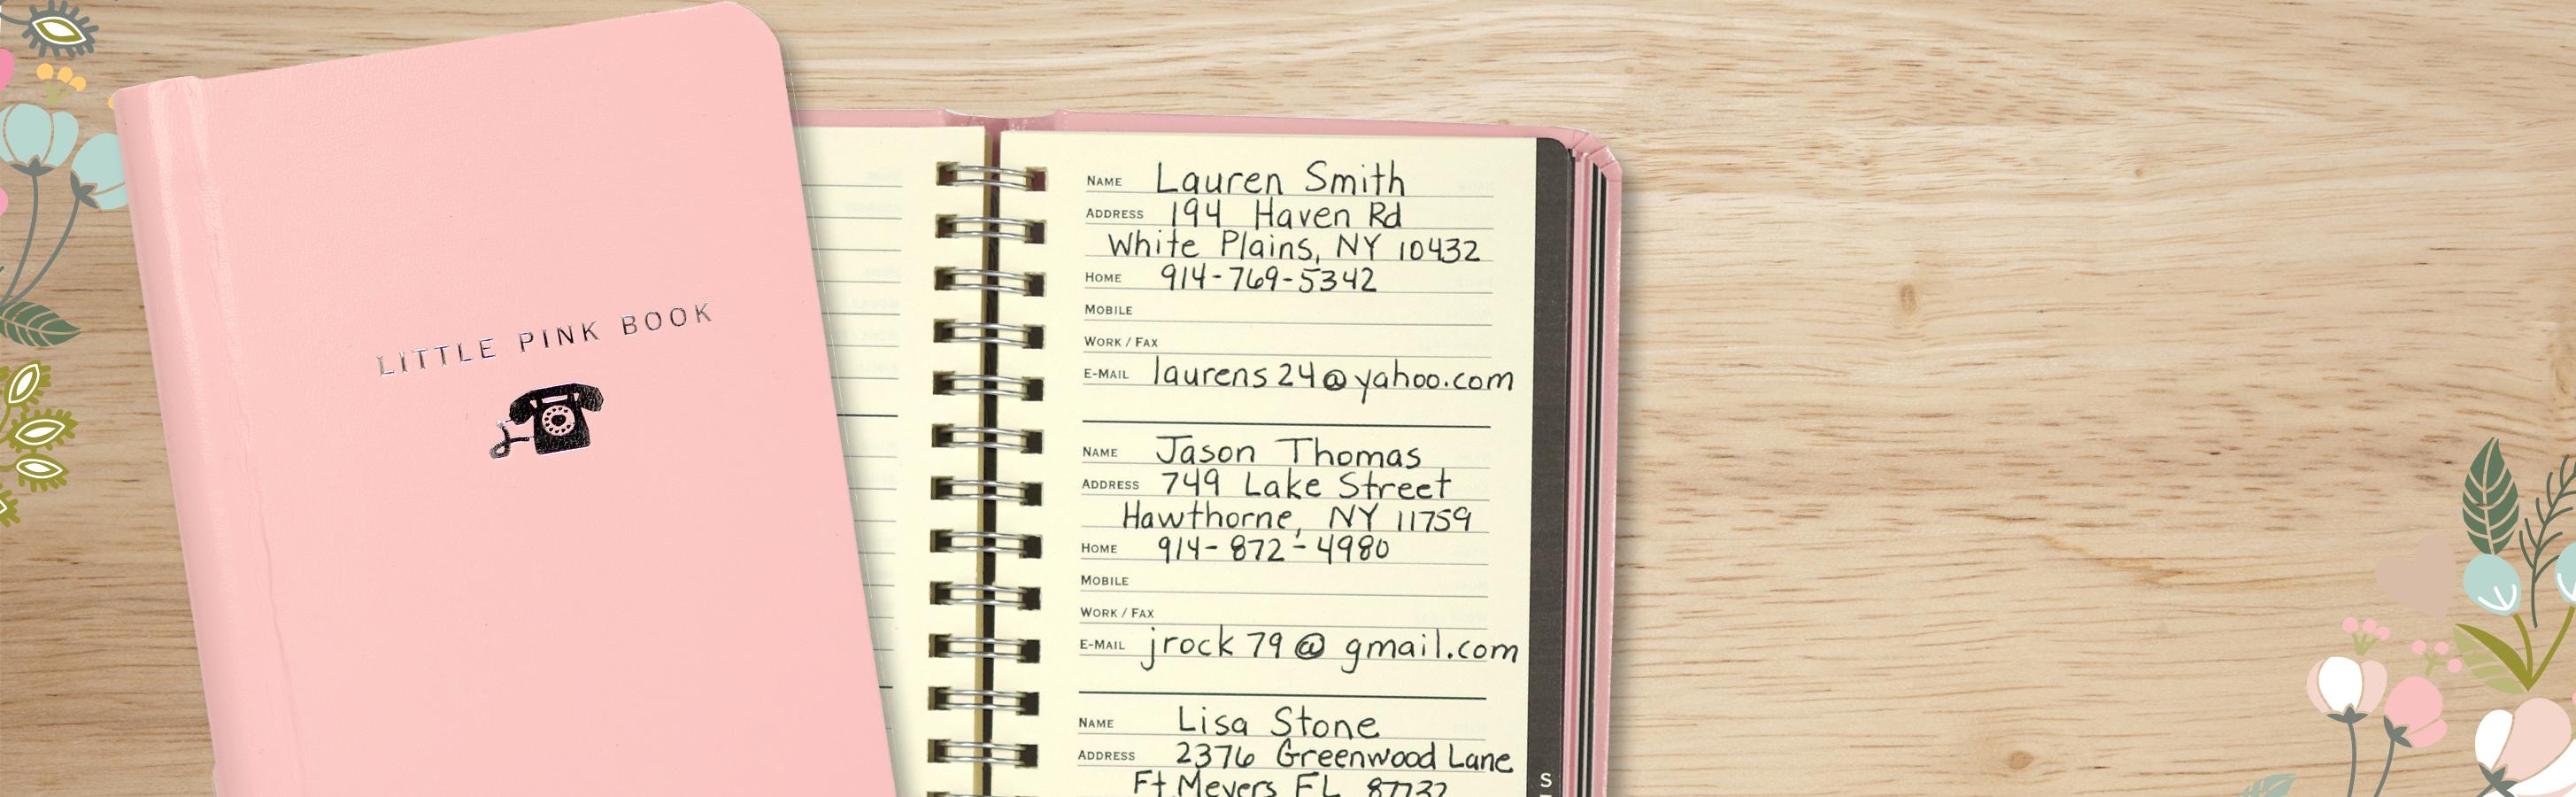 LITTLE PINK BOOK
NAME Lauren Smith
ADDRESS 194 Haven Rd
White Plains, NY 10432
HOME 914-769-5342
MOBILE
WORK / FAX
E-MAIL laurens24@yahoo.com
NAME Jason Thomas
ADDRESS 749 Lake Street
Hawthorne, NY 11759
HOME 914-872-4980
MOBILE
WORK / FAX
E-MAIL jrock79@gmail.com
NAME Lisa Stone
ADDRESS 2376 Greenwood Lane
Ft. Meyers FL 87732
S